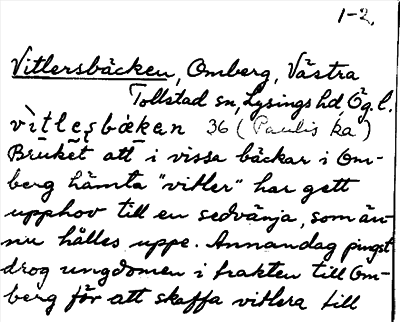 1-2.
Vitlersbäcken, Omberg, Västra
Tollstad sn, Lysings hd, Ög.l.
vìtleṣbäkan 36 (Paulis ka)
Bruket att i vissa bäckar i Om-
berg hämta "vitler" har gett
upphov till en sedvänja, som än-
nu hålles uppe. Annandag pingst
drog ungdomen i trakten till Om-
berg för att skaffa vitlera till